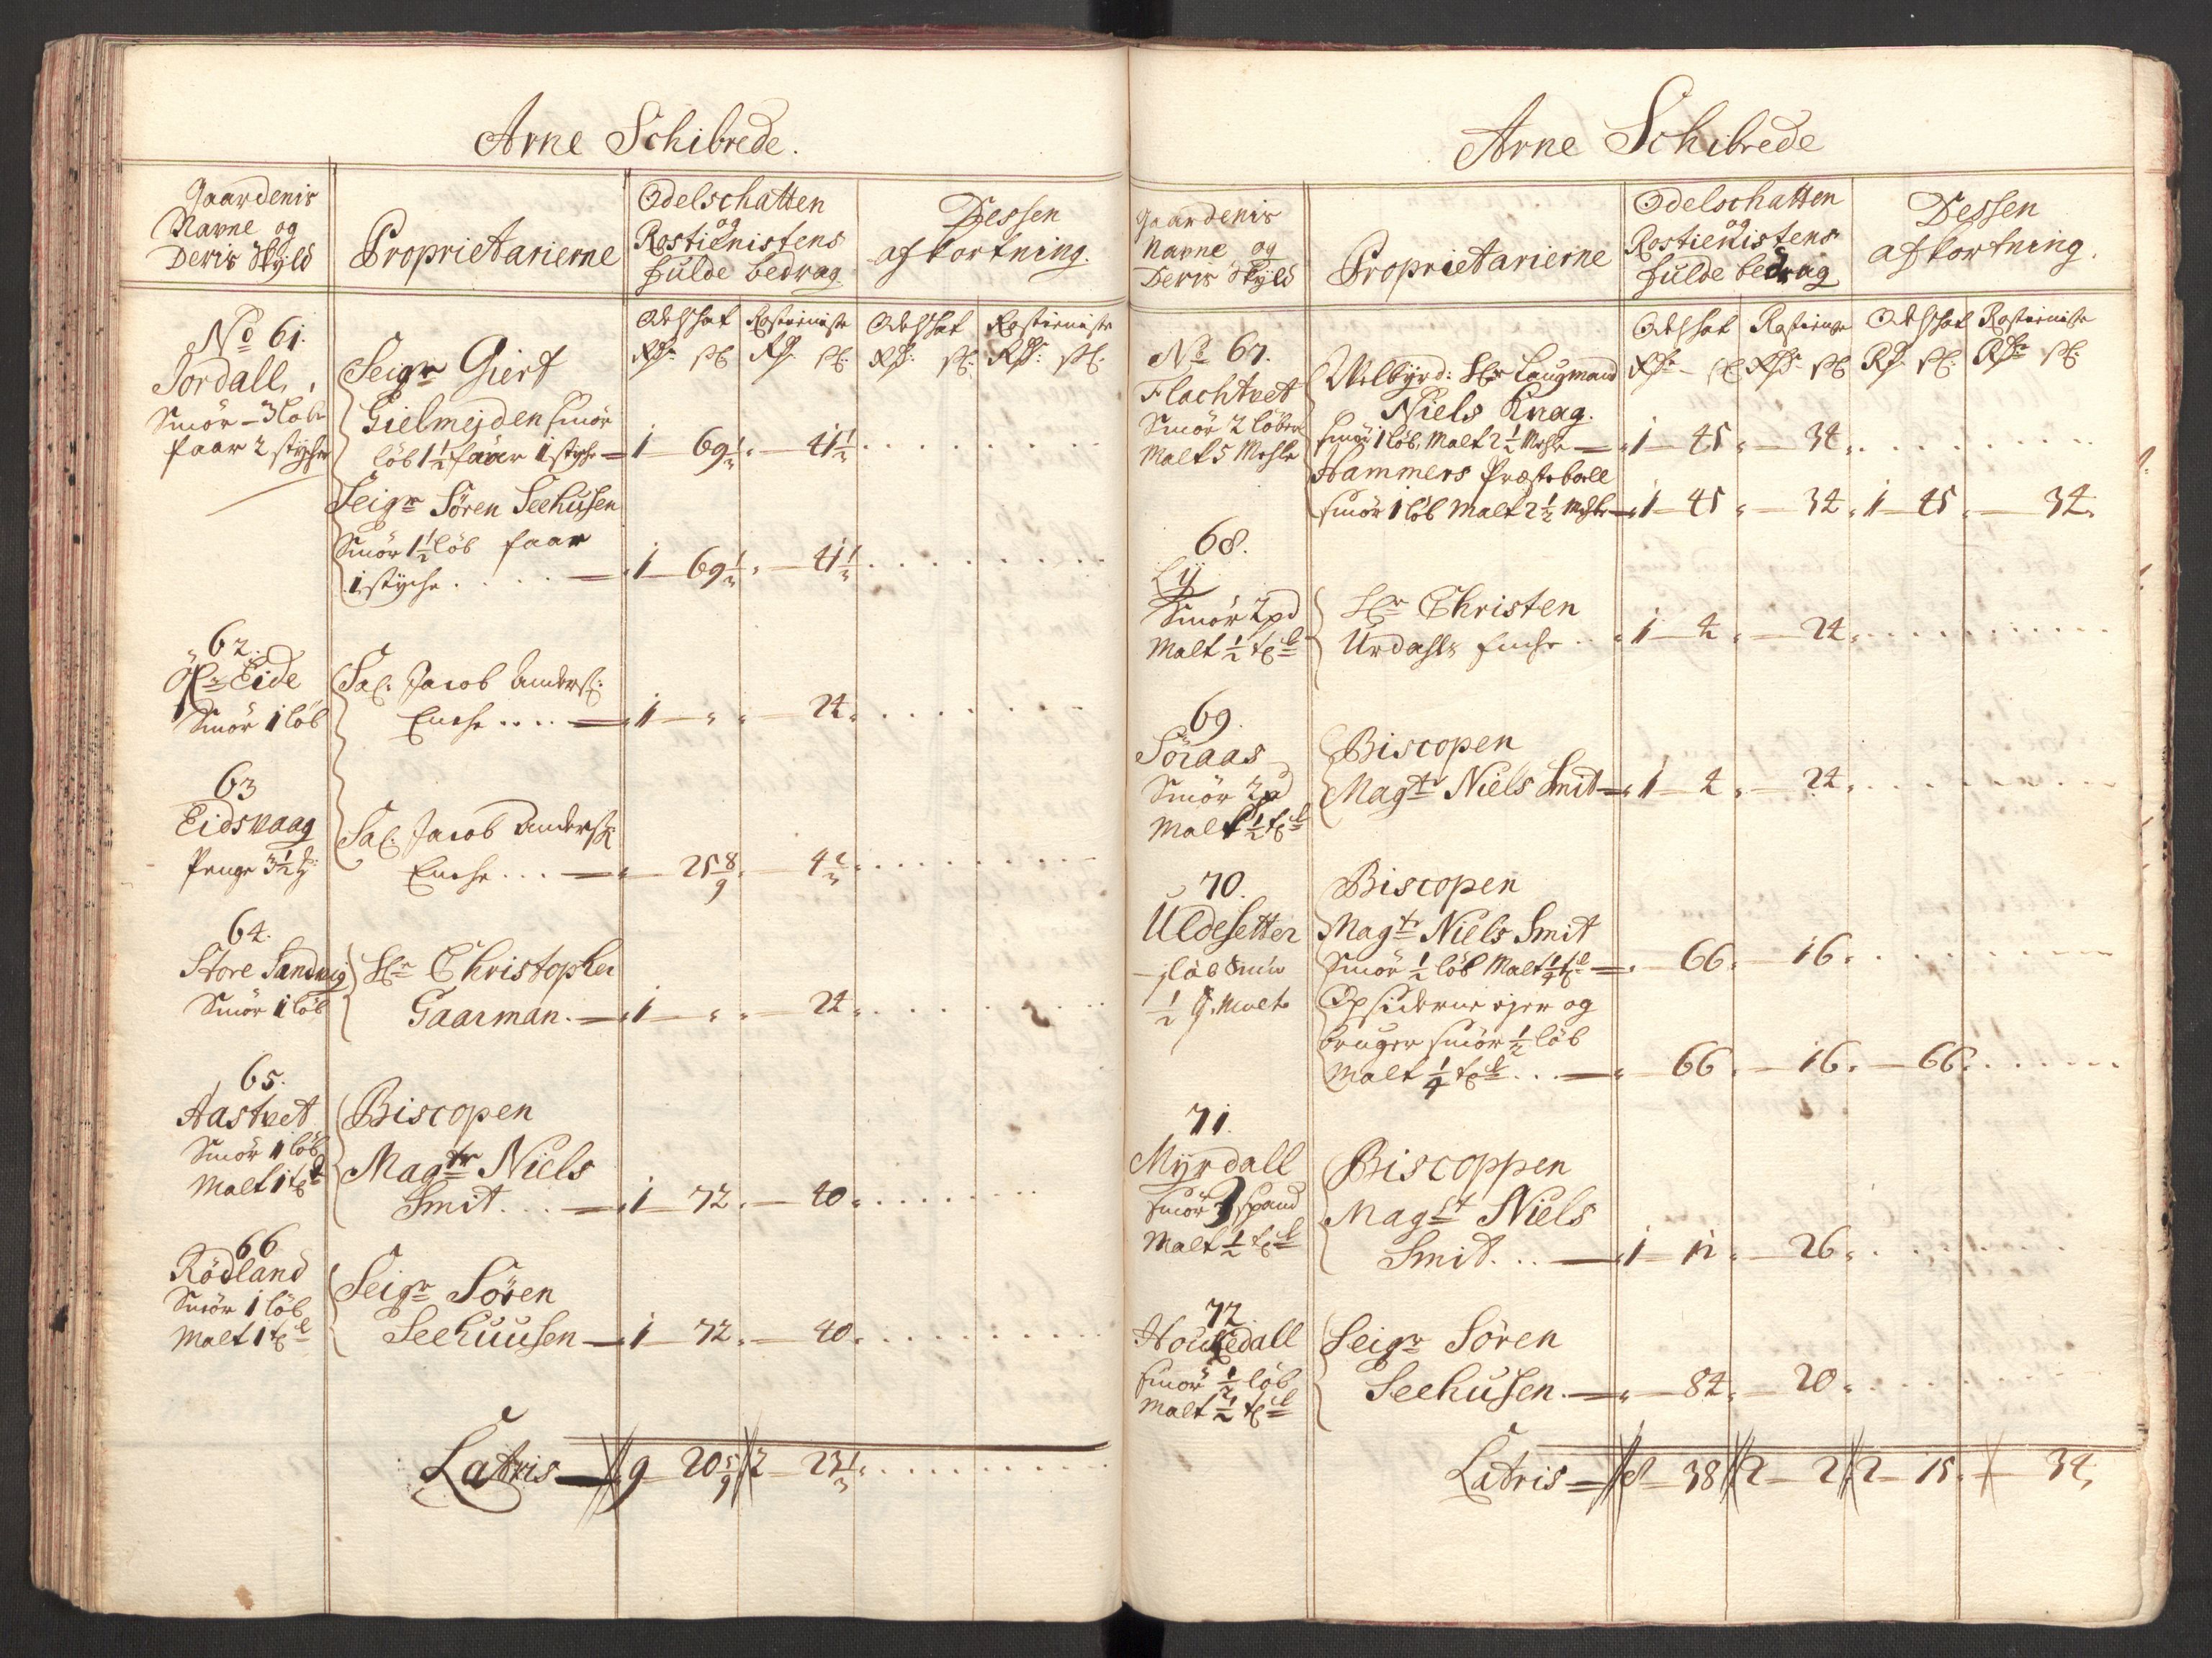 Arne Schibrede.
Gaardenis
Navne og
Deris Skyld
Proprietarierne
Odelschatten
og
Rostienistens
fulde bedrag
Dessen
afkortning.
Odelschat Rostieniste Odelschat Rostieniste
Rdr: sk: Rdr: sk: Rdr: sk: Rdr: sk:
No 61.
Jordall,
Smör - 3 løb
faar 2 stycher
Seigr Giert
Gielmejden smör
løb 1½ faar 1 styche — 1 — 69½ — 41½
Seigr Sören Seehusen
Smör 1½ løb faar
1 styche . . . . — 1 — 69½ — 41½
62.
Eide
Smör 1 løb
Sal: Jacob Anders:
Enche . . . . — 1 — „ — 24
63
Eidsvaag
Penge 3½
Sal: Jacob Anders:
Enche . . . — 25 8/9 — 4 2/3
64.
Store Sandvig
Smör 1 løb
Hr Christopher
Gaarman. — 1 — „ — 24
65.
Aastvet
Smör 1 løb
Malt 1 td
Biscopen
Magtr Niels
Smit. . . — 1 — 72 — 40
66
Rödland
Smör 1 løb
Malt 1 td
Seigr Sören
Seehuusen — 1 — 72 — 40
Latris — 9 — 20 5/9 2 — 23 1/3
Arne Schibrede
Gaardenis
Navne og
Deris Skyld
Proprietarierne
Odelschatten
og
Rostienistens
fulde bedrag
Dessen
afkortning.
Odelschat Rostieniste Odelschat Rostieniste
Rdr sk Rdr sk Rdr sk: Rdr sk:
No 67.
Flachtvet
Smör 2 løber
Malt 5 Mehle
Welbyrd: Hr Laugmand
Niels Knag.
smör 1 løb, Malt 2½ Mehle — 1 — 45 — 34
Hammers Præstebolle
smör 1 løb Malt 2½ Mehle — 1 — 45 — 34 1 — 45 — 34
68.
Ly
Smör 2 pd
Malt ½ td
Hr Christen
Urdahls Enche . . 1 — 4 — 24
69.
Söraas
Smör 2 pd
Malt ½ td
Biscopen
Magtr Niels Smit — 1 — 4 — 24
70.
Uldesetter
1 løb Smör
½ td Malt
Biscopen
Magtr Niels Smit
Smör ½ løb Malt ¼ td — 66 — 16
Opsidderne ejer og
bruger smör ½ løb
Malt ¼ td . . . — 66 — 16 — 66
71.
Myrdall
smör 3 spand
Malt ½ td
Biscoppen
Magst Niels
Smit. . . — 1 — 12 — 26
72
Houkedall
smör ½ løb
Malt ½ td
Seigr Sören
Seehusen. — 84 — 20
Latris — 8 — 38 2 — 2 2 — 15 — 34